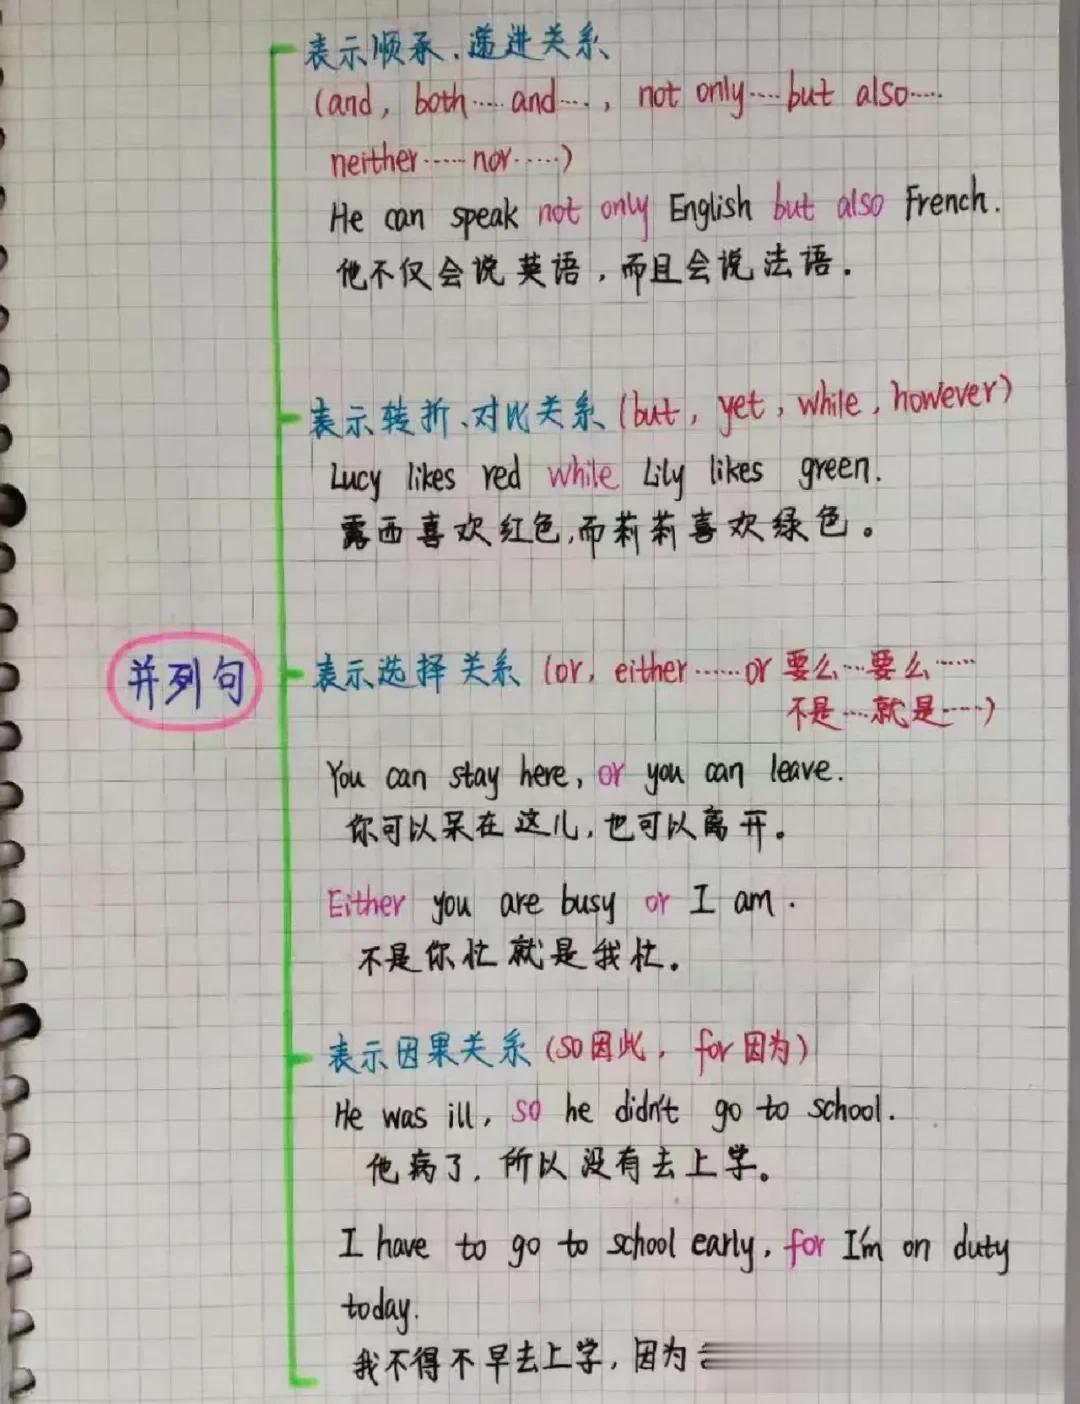 表示顺承、递进关系
(and, both……and…, not only……but also……
neither……nor……)
He can speak not only English but also French.
他不仅会说英语,而且会说法语.
表示转折、对比关系(but, yet, while, however)
Lucy likes red while Lily likes green.
露西喜欢红色,而莉莉喜欢绿色。
并列句
表示选择关系(or, either……or 要么…要么……
不是…就是……)
You can stay here, or you can leave.
你可以呆在这儿,也可以离开。
Either you are busy or I am.
不是你忙就是我忙。
表示因果关系(so因此, for因为)
He was ill, so he didn't go to school.
他病了,所以没有去上学。
I have to go to school early, for I'm on duty
today.
我不得不早去上学,因为